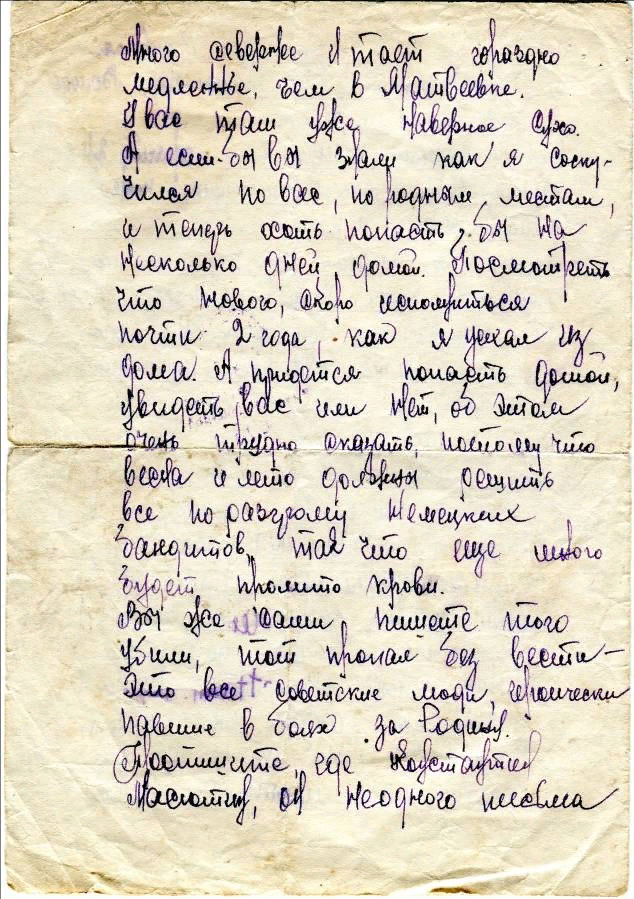 Много севернее и тает гораздо
медленнее, чем в Матвеевке.
У вас там уже наверное сухо.
А если-бы вы знали как я соску-
чился по вас, по родным местам,
и теперь хоть попасть бы на
несколько дней домой. Посмотреть
что нового, скоро исполниться
почти 2 года, как я уехал из
дома. А придется попасть домой,
увидеть вас или нет, об этом
очень трудно сказать, потому что
весна и лето должны решить
все по разгрому немецких
бандитов, так что еще много
будет пролито крови.
Вы же сами пишете того
убили, тот пропал без вести-
Это все советские люди, героически
павшие в боях за Родину.
Пропишите, где Константин
Масютин, он неодного письма